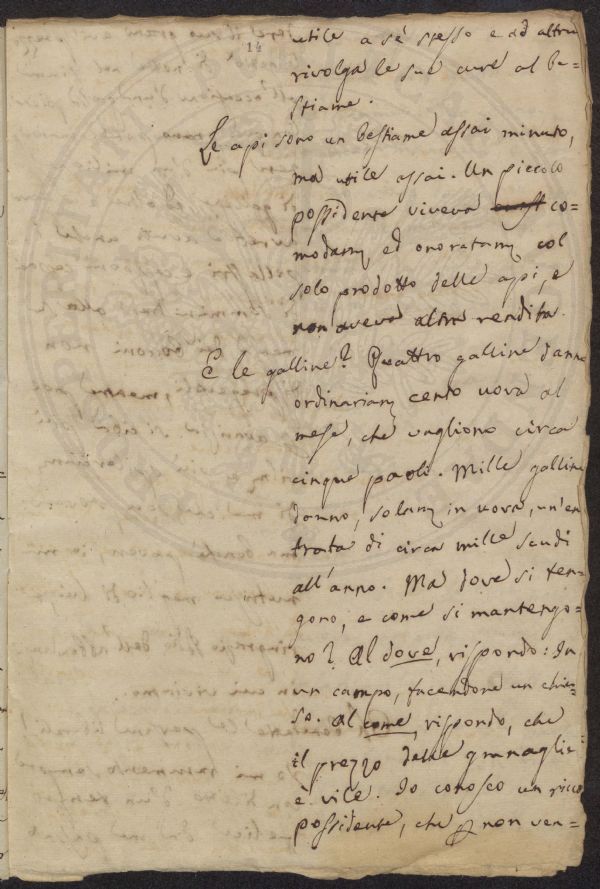 14
utile a sè stesso e ad altrui
rivolga le sue cure al be-
stiame.
Le api sono un bestiame assai minuto,
ma utile assai. Un piccolo
possidente viveva co-
modam ed onoratam col
solo prodotto delle api, e
non aveva altra rendita.
E le galline? Quattro galline danno
ordinariam cento uova al
mese, che vagliono circa
cinque paoli. Mille galline
danno, solam in uova, un'en
trata di circa mille scudi
all'anno. Ma dove si ten-
gono, e come si mantengo-
no? Al dove, rispondo: In
un campo, facendone un chiu-
so. Al come, rispondo, che
il prezzo delle granaglie
è vile. Io conosco un ricco
possidente, che non ven-